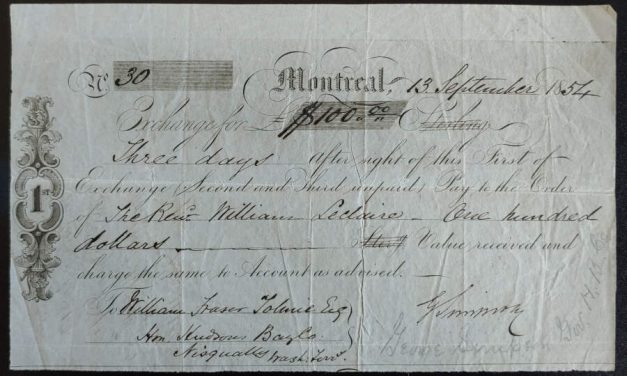 No. 30 Montreal, 13 September 1854
Exchange for £ $100.00 Sterling
Three days After sight of this First of
Exchange (Second and Third unpaid) Pay to the Order
of The Revd William Leclaire – One hundred
dollars – Ster1 Value received and
charge the same to Account as advised. –
1st
To William Fraser Tolmie Esq
Hon. Hudsons Bay Co.
Nisqually Wash. Terry.
G Simpson
George Simpson
Gov. H. B. Co